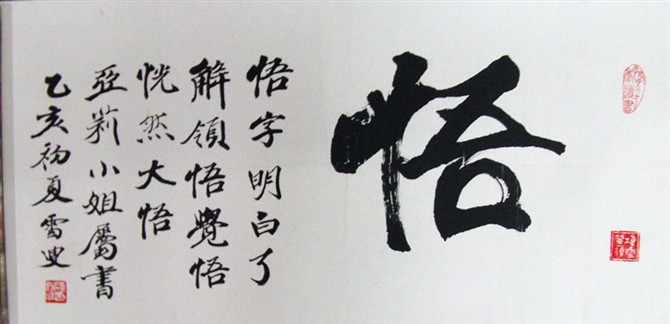 悟
悟字明白了
解領悟覺悟
恍然大悟
亞莉小姐屬書
乙亥初夏雪叟